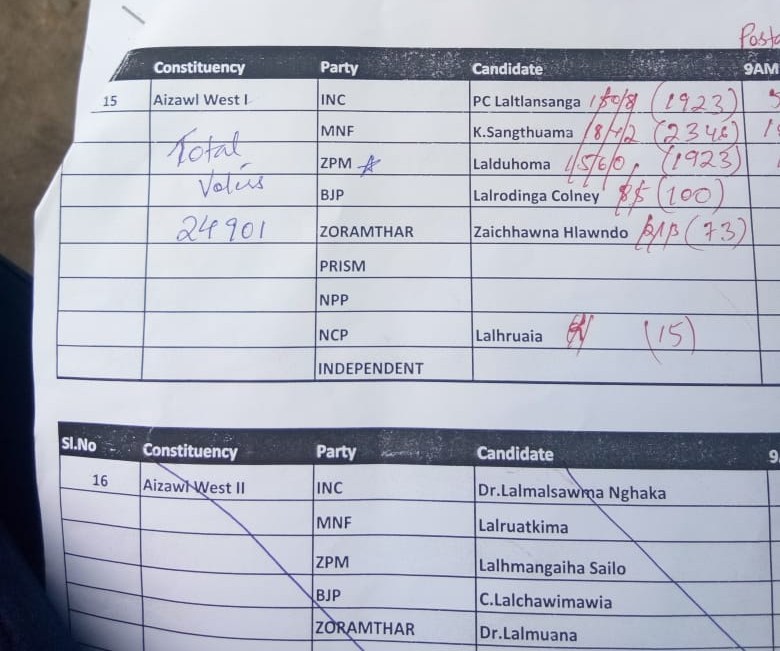 Posta
Constituency Party Candidate 9AM
15 Aizawl West I INC PC Laltlansanga (1923) 5
MNF K.Sangthuama (2346) 1
Total ZPM Lalduhoma (1923)
BJP Lalrodinga Colney (100)
24901 ZORAMTHAR Zaichhawna Hlawndo (73)
PRISM
NPP
NCP Lalhruaia (15)
INDEPENDENT
Sl.No Constituency Party Candidate 9
16 Aizawl West II INC Dr.Lalmalsawma Nghaka
MNF Lalruatkima
ZPM Lalhmangaiha Sailo
BJP C.Lalchawimawia
ZORAMTHAR Dr.Lalmuana